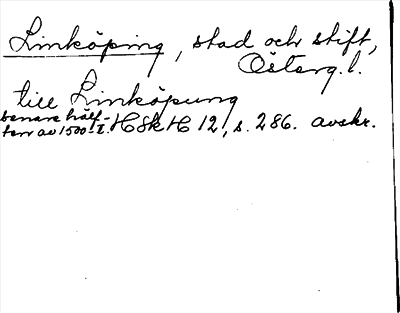 Linköping, stad och stift,
Österg.l.
till Linköpung
senare hälf-
ten av 1500-t. HSkH 12, s. 286. avskr.